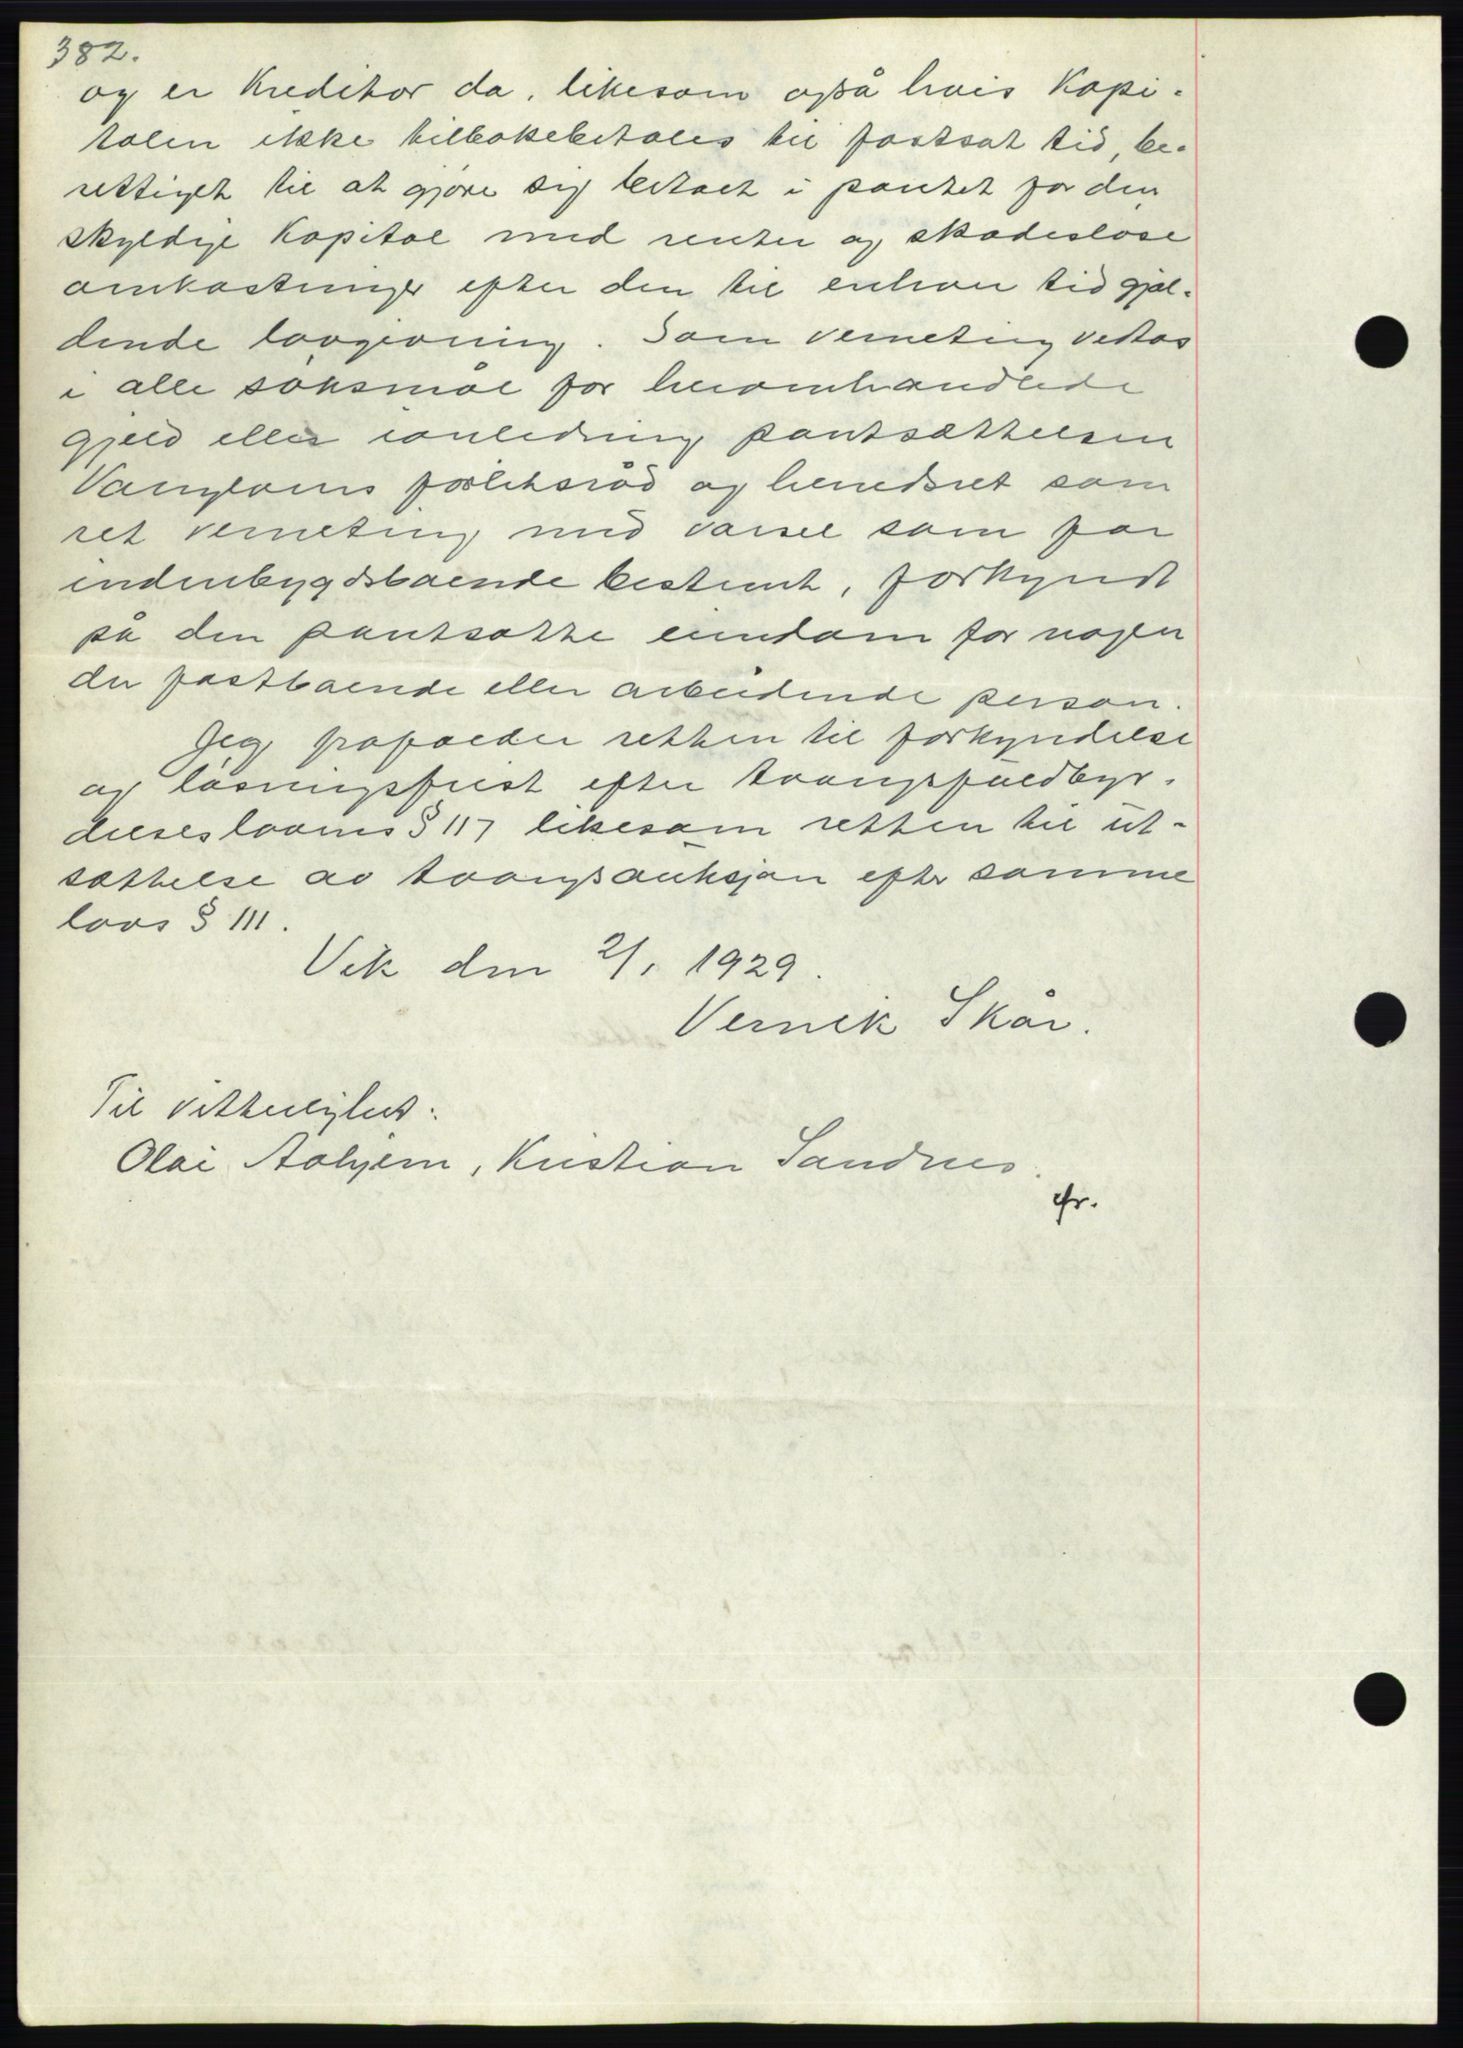 382.
og er Kreditor da, likesom også hvis Kapi-
talen ikke tilbakebetales til fastsat tid, be-
rettiget til at gjøre sig betalt i pantet for den
skyldige Kapital med renter og skadesløse
omkostninger efter den til enhver tid gjæl-
dende lovgivning. Som verneting vedtas
i alle søksmål for heromhandlede
gjeld eller i anledning pantsættelsen
forliksråd og herredsret som
ret verneting med varsel som for
indenbygdsboende bestemt, forkyndt
på den pantsatte eiendom for nogen
der fastboende eller arbeidende person.
Jeg frafalder retten til forkyndelse
og løsningsfrist efter tvangsfuldbyr-
delseslovens § 117 likesom retten til ut-
sættelse av tvangsauksjon efter samme
lovs § 111.
Vik den 2/1 1929.
Vernik Skår.
Til vitterlighet:
Olai Aahjem, Kristian Sandnes.